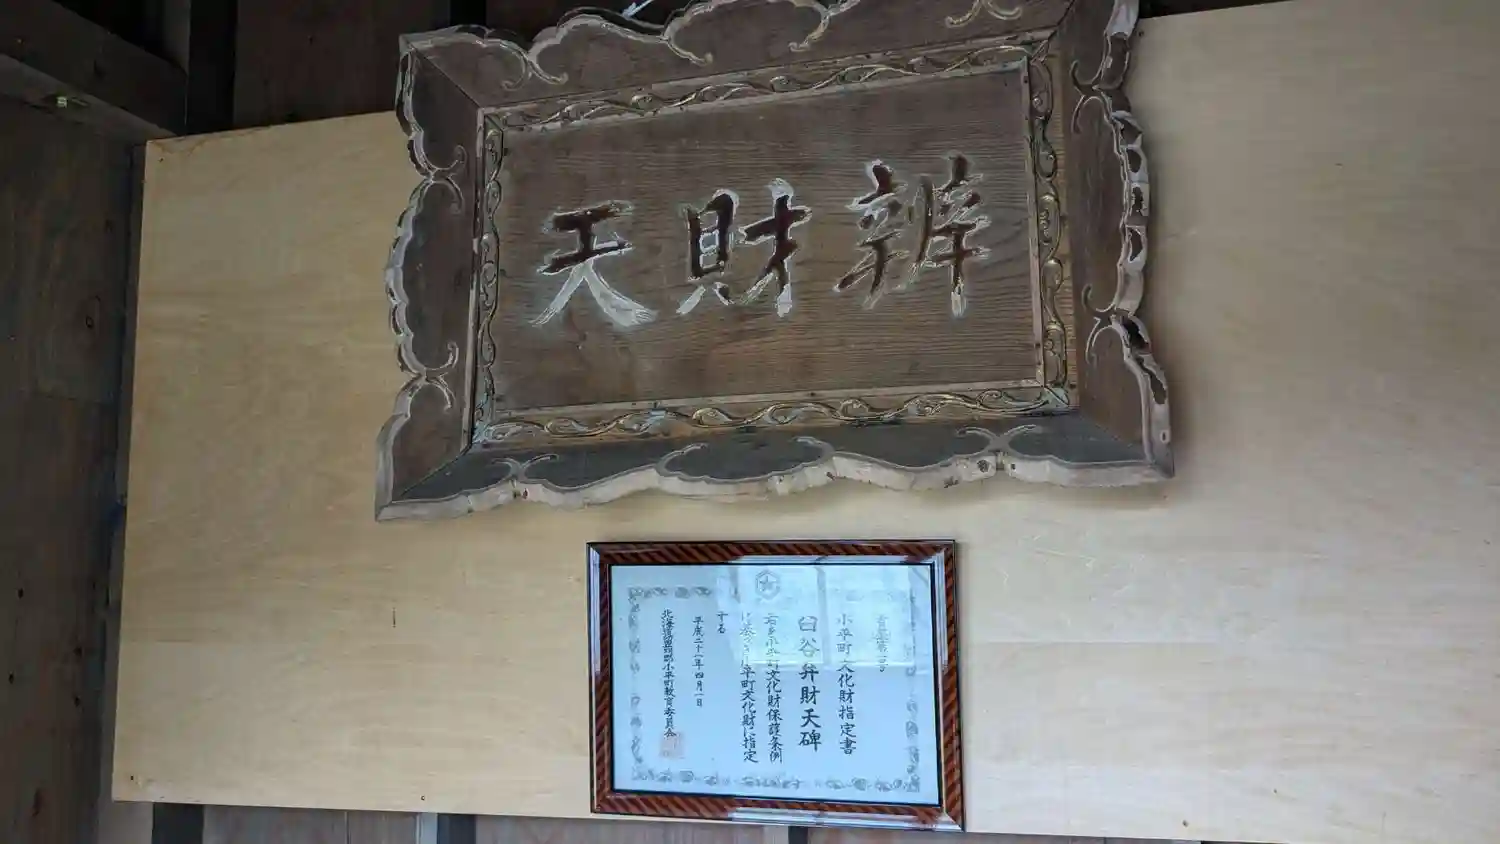 辨財天
小平町文化財指定書
臼谷弁財天碑
右を小平町文化財保護条例
に基づき小平町文化財に指定
する
平成二十一年四月一日
北海道留萌郡小平町教育委員会